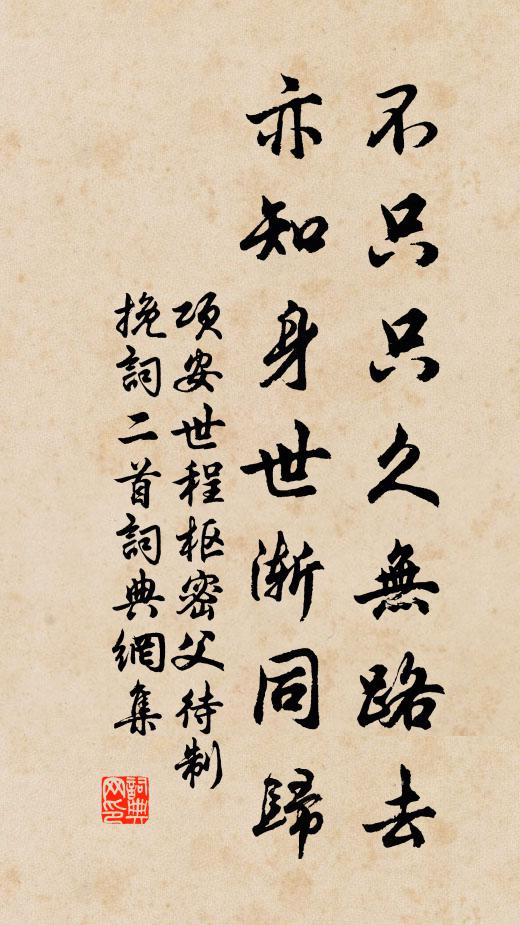 不只只久無路去
亦知身世渐同歸
項安世程枢密父待制
挽詞二首詞典網集
詞典网印